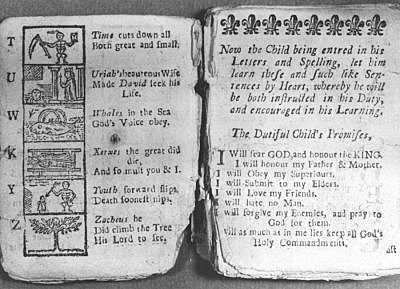 T
Time cuts down all
Both great and small.
U
Uriah's beauteous Wife
Made David seek his
Life.
W
Whales in the Sea
God's Voice obey.
K
Xerxes the great did
die,
And so must you & I.
Y
Youth forward slips,
Death soonest nips.
Z
Zacheus he
Did climb the Tree
His Lord to see,
Now the Child being entred in his
Letters and Spelling, let him
learn these and such like Sen-
tences by Heart, whereby he will
be both instructed in his Duty,
and encouraged in his Learning.
The Dutiful Child's Promises,
I Will fear GOD, and honour the KING.
I will honour my Father & Mother.
I will Obey my Superiours.
I will Submit to my Elders.
I will Love my Friends.
I will hate no Man.
I will forgive my Enemies, and pray to
God for them.
will as much as in me lies keep all God's
Holy Commandments.